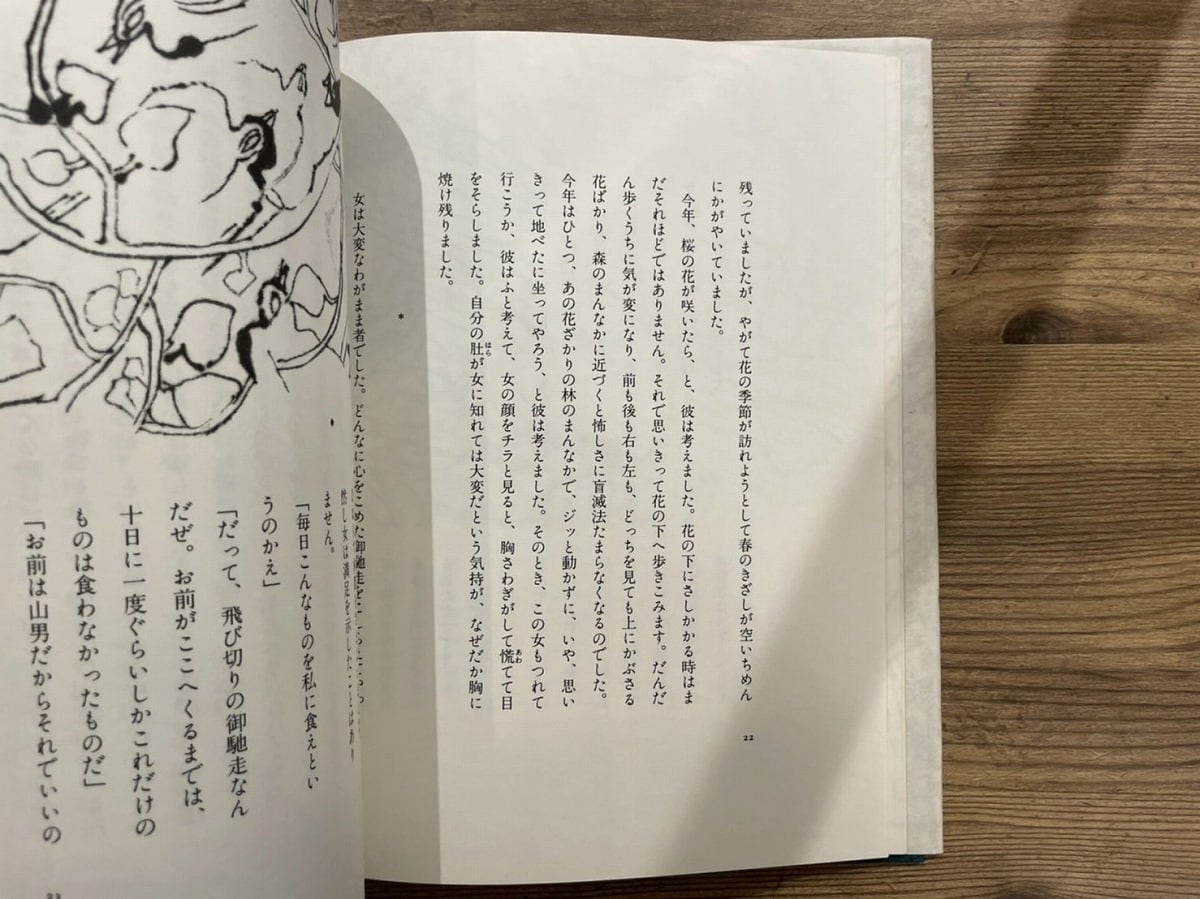 残っていましたが、やがて花の季節が訪れようとして春のきざしが空いちめん
にかがやいていました。
今年、桜の花が咲いたら、と、彼は考えました。花の下にさしかかる時はま
だそれほどではありません。それで思いきって花の下へ歩きこみます。だんだ
ん歩くうちに気が変になり、前も後も右も左も、どっちを見ても上にかぶさる
花ばかり、森のまんなかに近づくと怖しさに盲滅法たまらなくなるのでした。
今年はひとつ、あの花ざかりの林のまんなかで、ジッと動かずに、いや、思い
きって地べたに坐ってやろう、と彼は考えました。そのとき、この女もつれて
行こうか、彼はふと考えて、女の顔をチラと見ると、胸さわぎがして慌てて目
あわ
をそらしました。自分の肚が女に知れては大変だという気持が、なぜだか胸に
はら
焼け残りました。
*
女は大変なわがまま者でした。どんなに心をこめた御馳走を
女は満足を示したことは
ません。
「毎日こんなものを私に食えとい
うのかえ」
「だって、飛び切りの御馳走なん
だぜ。お前がここへくるまでは、
十日に一度ぐらいしかこれだけの
ものは食わなかったものだ」
「お前は山男だからそれでいいの
22
23